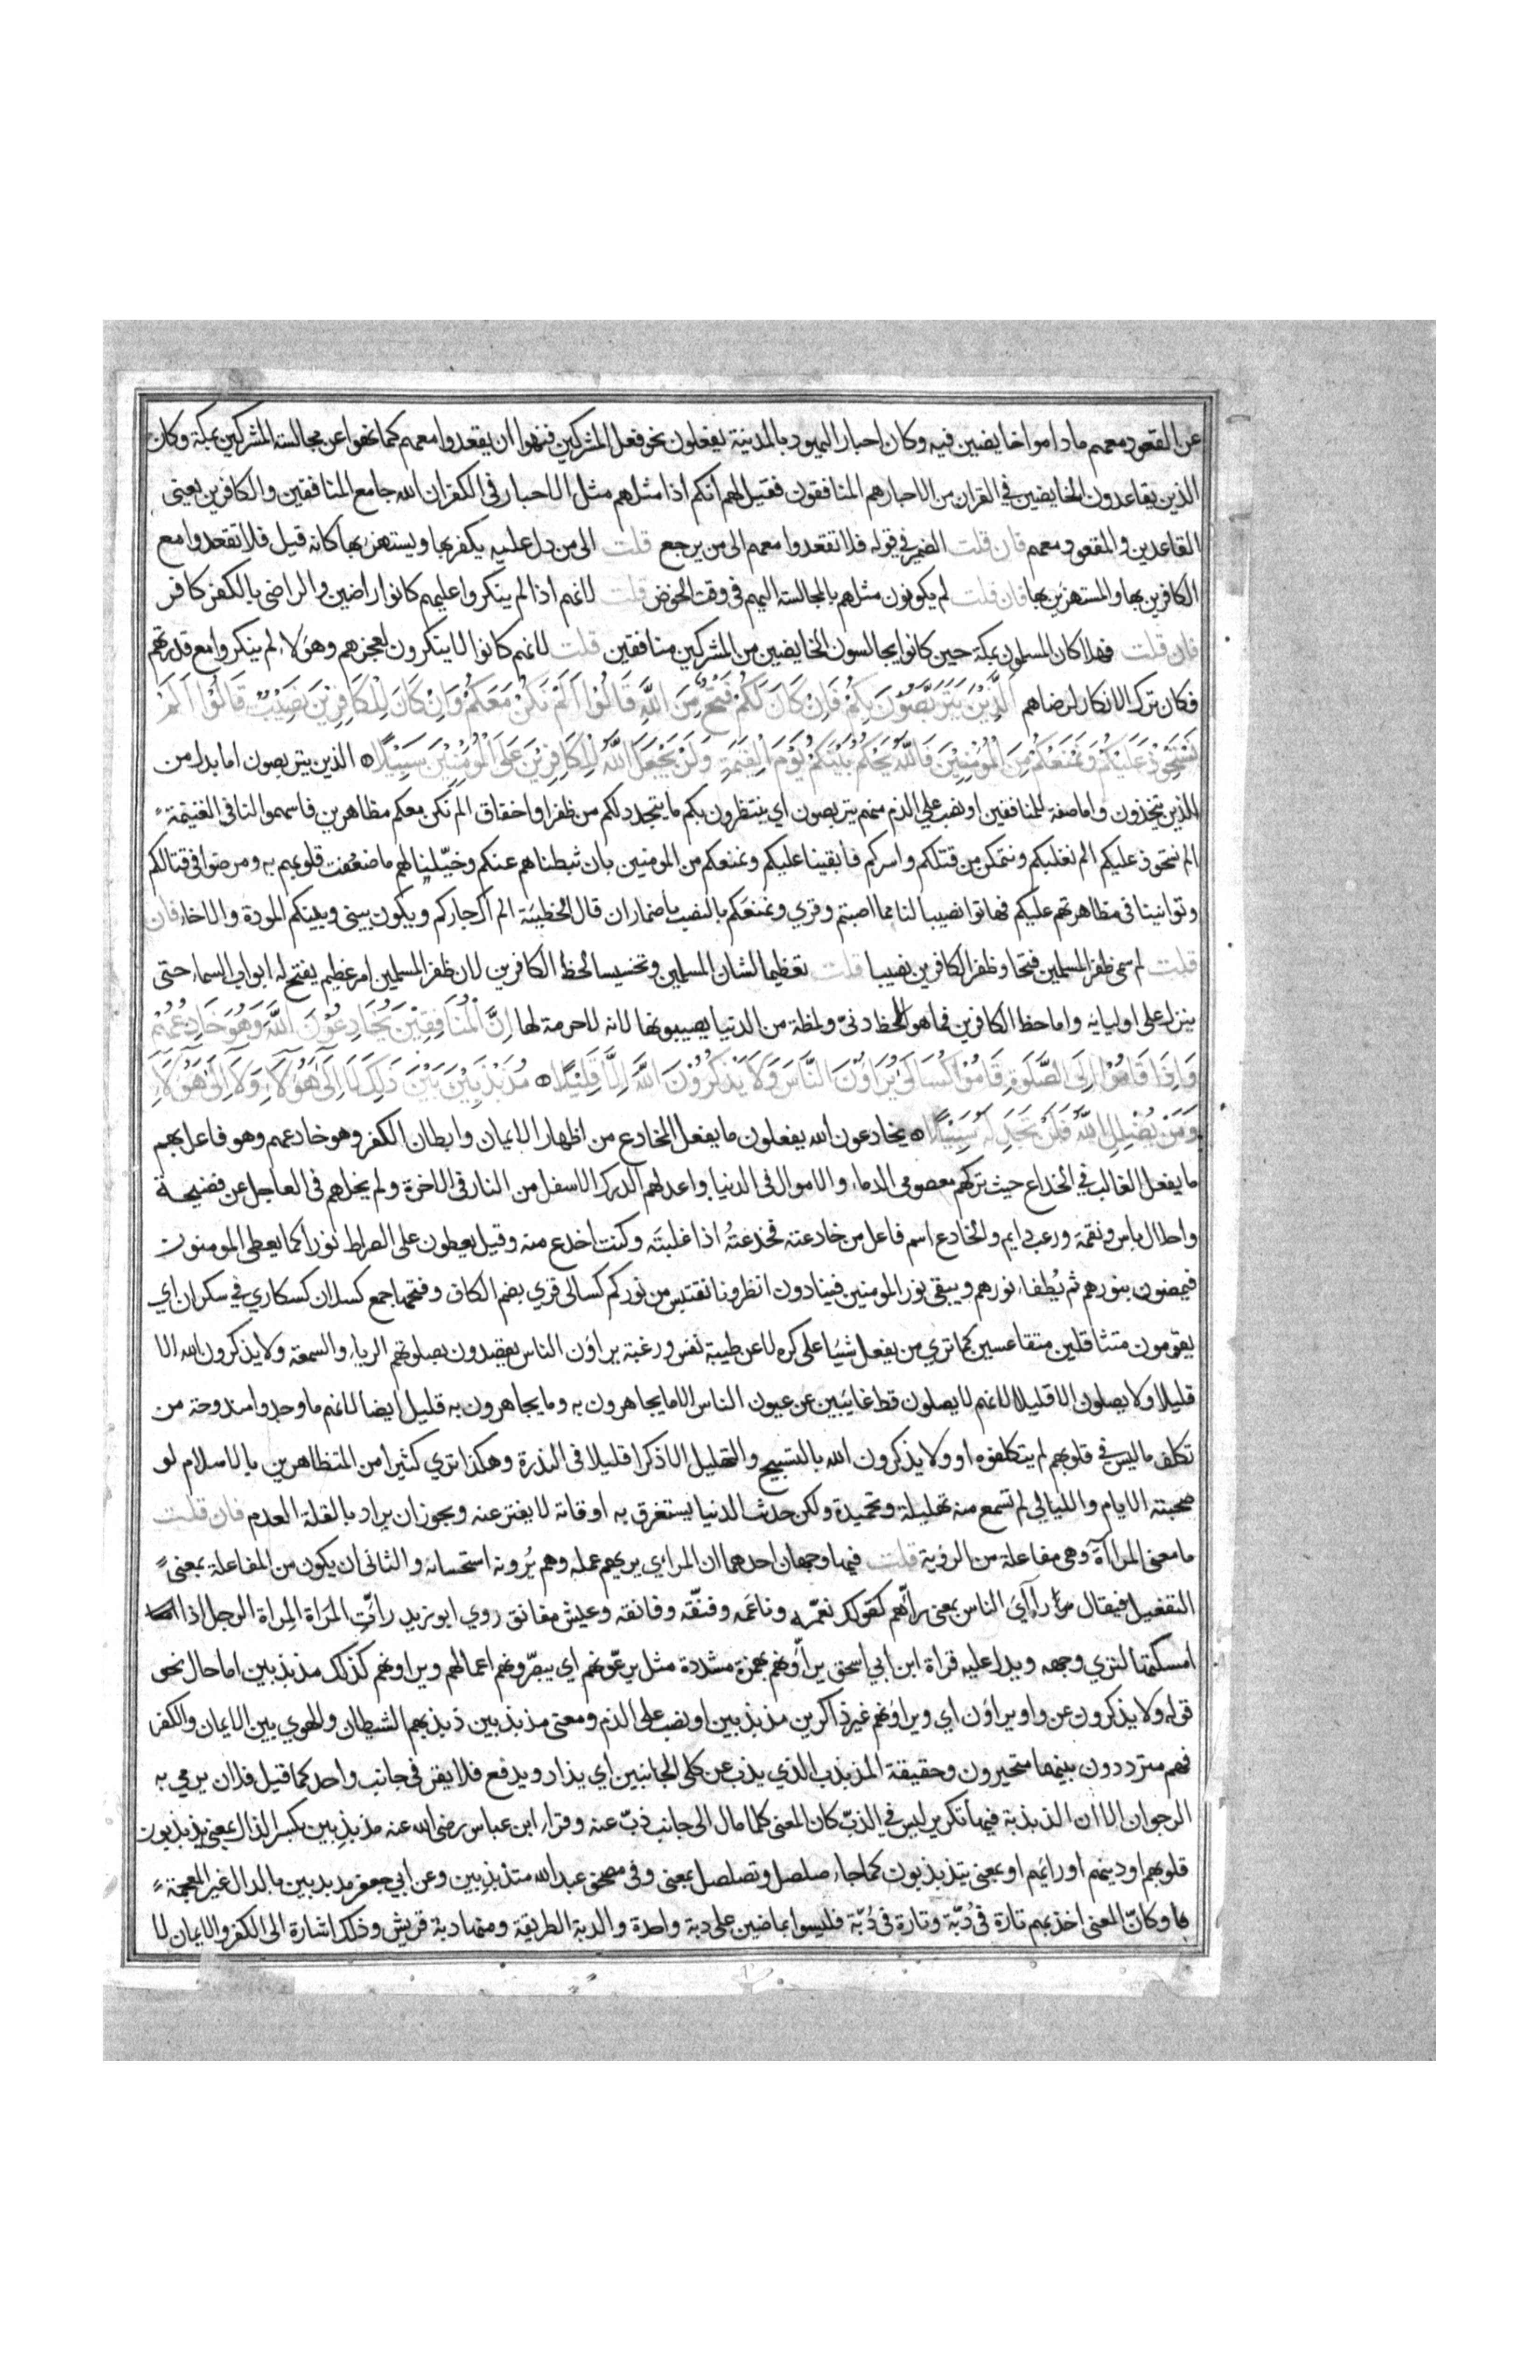 عن القعود معهم ما داموا خايضين فيه وكان احبار اليهود بالمدينة يفعلون نحو فعل المشركين فنهوا ان يقعدوا معهم كما نهوا عن مجالسة المشركين بمكة وكان
الذين يقاعدون الخايضين في القران من الاحبار هم المنافقون فقيل لهم انكم اذا مثلهم مثل الاحبار في الكفر ان الله جامع المنافقين والكافرين يعني
القاعدين والمقعود معهم فان قلت الضمير في قوله فلا تقعدوا معهم الى من يرجع قلت الى من دل عليه يكفر بها ويستهزئ بها كانه قيل فلا تقعدوا مع
الكافرين بها والمستهزين بها فان قلت لم يكونون مثلهم بالمجالسة اليهم في وقت الخوض قلت لانهم اذا لم ينكروا عليهم كانوا راضين والراضي بالكفر كافر
فان قلت فهلا كان المسلمون بمكة حين كانوا يجالسون الخايضين من المشركين منافقين قلت لانهم كانوا لا ينكرون لعجزهم وهؤلاء لم ينكروا مع قدرتهم
فكان ترك الانكار لرضاهم اَلَّذِيْنَ يَتَرَبَّصُوْنَ بِكُمْ فَاِنْ كَانَ لَكُمْ فَتْحٌ مِنَ اللَّهِ قَالُوْا اَلَمْ نَكُنْ مَعَكُمْ وَاِنْ كَانَ لِلْكَافِرِيْنَ نَصِيْبٌ قَالُوْا اَلَمْ
نَسْتَحْوِذْ عَلَيْكُمْ وَنَمْنَعْكُمْ مِنَ الْمُؤْمِنِيْنَ فَاللَّهُ يَحْكُمُ بَيْنَكُمْ يَوْمَ الْقِيٰمَةِ وَلَنْ يَجْعَلَ اللَّهُ لِلْكَافِرِيْنَ عَلَى الْمُؤْمِنِيْنَ سَبِيْلًا الذين يتربصون اما بدل من
الذين يتخذون واما صفة للمنافقين او نصب على الذم منهم يتربصون اي ينتظرون بكم ما يتجدد لكم من ظفر او اخقاق الم نكن معكم مظاهرين فاسهموا لنا في الغنيمة
الم نستحوذ عليكم الم نغلبكم ونتمكن من قتلكم واسركم فابقينا عليكم ونمنعكم من المومنين بان ثبطناهم عنكم وخيّلنا لهم ما ضعفت قلوبهم به ومرضوا في قتالكم
وتوانينا في مظاهرتهم عليكم فهاتوا نصيبا لنا مما اصبتم وقري ونمنعَكم بالنصب باضمار ان قال الحطيئة الم اك جاركم ويكون بيني وبينكم المودة والاخاء فان
قلت لم سمى ظفر المسلمين فتحا وظفر الكافرين نصيبا قلت تعظيما لشان المسلمين وتخسيسا لحظ الكافرين لان ظفر المسلمين امر عظيم يفتح له ابواب السماء حتى
ينزل على اوليايه واما حظ الكافرين فما هو الا حظ دنيّ ولمظة من الدنيا يصيبونها لانه لا حرمة لها اِنَّ الْمُنَافِقِيْنَ يُخَادِعُوْنَ اللَّهَ وَهُوَ خَادِعُهُمْ
وَاِذَا قَامُوْا اِلَى الصَّلٰوةِ قَامُوْا كُسَالَىٰ يُرَاؤُنَ النَّاسَ وَلَا يَذْكُرُوْنَ اللَّهَ اِلَّا قَلِيْلًا مُذَبْذَبِيْنَ بَيْنَ ذٰلِكَ لَا اِلَىٰ هٰؤُلَاءِ وَلَا اِلَىٰ هٰؤُلَاءِ
وَمَنْ يُضْلِلِ اللَّهُ فَلَنْ تَجِدَ لَهُ سَبِيْلًا يخادعون الله يفعلون ما يفعل المخادع من اظهار الايمان وابطان الكفر وهو خادعهم وهو فاعل بهم
ما يفعل الغالب في الخداع حيث تركهم معصومي الدماء والاموال في الدنيا واعد لهم الدرك الاسفل من النار في الاخرة ولم يخلهم في العاجل عن فضيحة
واحلال باس ونقمة ورعب دايم والخادع اسم فاعل من خادعته فخدعتُه اذا غلبتَه وكنت اخدع منه وقيل يعطون على الصراط نورا كما يعطى المومنون
فيمضون بنورهم ثم يُطفاء نورهم ويبقى نور المومنين فينادون انظرونا نقتبس من نوركم كسالى قري بضم الكاف وفتحها جمع كسلان كسكاري في سكران اي
يقومون متثاقلين متقاعسين كما تري من يفعل شيئا على كره لا عن طيبة نفس ورغبة يراؤن الناس يقصدون بصلوتهم الرياء والسمعة ولا يذكرون الله الا
قليلا ولا يصلون الا قليلا لانهم لا يصلون قط غائبين عن عيون الناس الا ما يجاهرون به وما يجاهرون به قليل ايضا لانهم ما وجدوا مندوحة من
تكلف ما ليس في قلوبهم لم يتكلفوه او ولا يذكرون الله بالتسبيح والتهليل الا ذكرا قليلا في الندرة وهكذا تري كثيرا من المتظاهرين بالاسلام لو
صحبته الايام والليالي لم تسمع منه تهليلة وتحميدة ولكن حدث الدنيا يستغرق به اوقاتة لا يفتر عنه ويجوز ان يراد بالقلة العدم فان قلت
ما معنى المراآة وهي مفاعلة من الروية قلت فيها وجهان احدهما ان المراءي يريهم عمله وهم يُرونه استحسانه والثاني ان يكون من المفاعلة بمعنى
التفعيل فيقال راآي الناس بمعنى رأّهم كقولك نعّمه وناعَمه وفنّقه وفانقه وعيش مفانق روي ابو زيد رأتِ المَراة المِراة الرجل اذا
امسكتها لتري وجهه ويدل عليه قراة ابن ابي اسحق يرأّونهم بهمزة مشددة مثل يرعّونهم اي يبصّرونهم اعمالهم ويراونهم كذلك مذبذبين اما حال نحو
قوله ولا يذكرون عن واو يراؤن اي ويراؤنهم غير ذاكرين مذبذبين او نصب على الذم ومعنى مذبذبين ذبذبهم الشيطان والهوي بين الايمان والكفر
فهم مترددون بينهما متحيرون وحقيقة المذبذب الذي يذب عن كلى الجانبين اي يذاد ويدفع فلا يقر في جانب واحد كما قيل فلان يرمي به
الرجوان الا ان الذبذبة فيها تكرير ليس في الذبّ كان المعنى كلما مال الى جانب ذبّ عنه وقراء ابن عباس رضى الله عنه مذبذِبين بكسر الذال بمعنى يذبذبون
قلوبهم او دينهم او رائهم او بمعنى يتذبذبون كما جاء صلصل وتصلصل بمعنى وفي مصحف عبد الله متذبذبين وعن ابي جعفر مدبدبين بالدال غير المعجمة
وكانّ المعنى اخذ بهم تارة في دُبّة وتارة في دُبّة فليسوا بماضين على دبة واحدة والدبة الطريقة ومنها دبة قريش وذلك اشارة الى الكفر والايمان لا